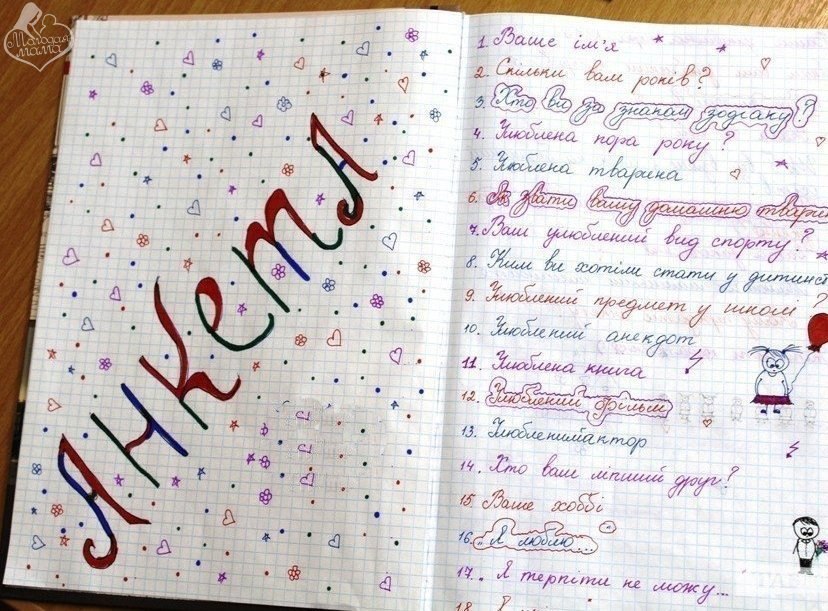 Молодая
мама
АНКЕТА
1. Ваше ім'я
2. Скільки вам років?
3. Хто ви за знаком зодіаку?
4. Улюблена пора року?
5. Улюблена тварина
6. Як звати вашу домашню твари
7. Ваш улюблений вид спорту?
8. Ким ви хотіли стати у дитинст
9. Улюблений предмет у школі?
10. Улюблений анекдот
11. Улюблена книга
12. Улюблений фільм
13. Улюблений актор
14. Хто ваш ліпший друг?
15. Ваше хоббі
16. „Я люблю...
17. „ Я терпіти не можу...
18.